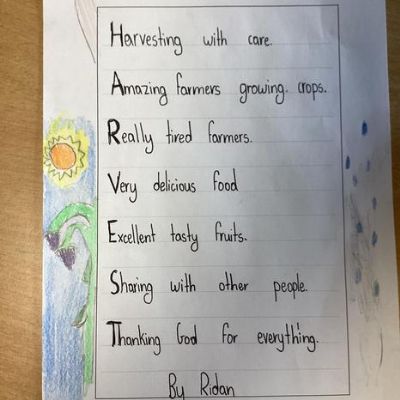 Harvesting with care.
Amazing farmers growing. crops.
Really tired farmers.
Very delicious food
Excellent tasty fruits.
Sharing with other people.
Thanking God for everything.
By Ridan